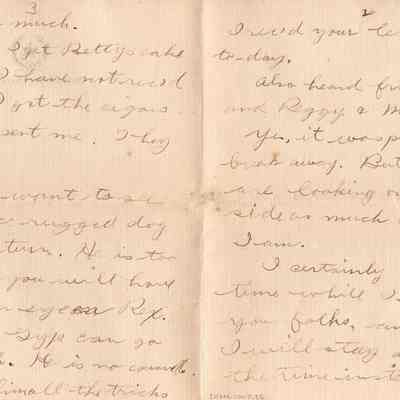 3
much.
I got Bettys cake
I have not rec'd
I got the cigars
sent me. They
want to see
rugged dog
turn. He is too
you will have
eye on Rex.
Gyp can go
He is no
him all the tricks
2
I rec'd your le
to-day.
Also heard fr
and Peggy & M
Yes, it was p
break away. But
are looking on
side as much
I am.
I certainly
time while I
you folks, an
I will stay
the time inst